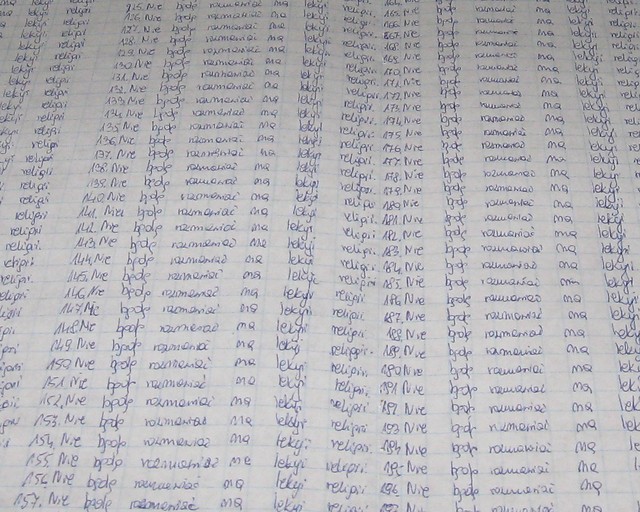 lekcji religii 125. Nie będę rozmawiać na lekcji religii. 165. Nie będę rozmawiać na lekcji religii
lekcji religii 126. Nie będę rozmawiać na lekcji religii. 166. Nie będę rozmawiać na lekcji religii
lekcji religii 127. Nie będę rozmawiać na lekcji religii. 167. Nie będę rozmawiać na lekcji religii
lekcji religii 128. Nie będę rozmawiać na lekcji religii. 168. Nie będę rozmawiać na lekcji religii
lekcji religii 129. Nie będę rozmawiać na lekcji religii. 169. Nie będę rozmawiać na lekcji religii
lekcji religii 130. Nie będę rozmawiać na lekcji religii. 170. Nie będę rozmawiać na lekcji religii
lekcji religii 131. Nie będę rozmawiać na lekcji religii. 171. Nie będę rozmawiać na lekcji
lekcji religii 132. Nie będę rozmawiać na lekcji religii. 172. Nie będę rozmawiać na lekcji
lekcji religii 133. Nie będę rozmawiać na lekcji religii. 173. Nie będę rozmawiać na lekcji
religii 134. Nie będę rozmawiać na lekcji religii. 174. Nie będę rozmawiać na lekcji
religii 135. Nie będę rozmawiać na lekcji religii. 175. Nie będę rozmawiać na lekcji
religii. 136. Nie będę rozmawiać na lekcji religii. 176. Nie będę rozmawiać na lekcji
religii. 137. Nie będę rozmawiać na lekcji religii. 177. Nie będę rozmawiać na lekcji
religii 138. Nie będę rozmawiać na lekcji religii. 178. Nie będę rozmawiać na lekcji
religii 139. Nie będę rozmawiać na lekcji religii. 179. Nie będę rozmawiać na lekcji
religii 140. Nie będę rozmawiać na lekcji religii. 180. Nie będę rozmawiać na lekcji
religii. 141. Nie będę rozmawiać na lekcji religii. 181. Nie będę rozmawiać na lekcji
religii. 142. Nie będę rozmawiać na lekcji religii. 182. Nie będę rozmawiać na lekcji
religii. 143. Nie będę rozmawiać na lekcji religii. 183. Nie będę rozmawiać na lekcji
religii. 144. Nie będę rozmawiać na lekcji religii. 184. Nie będę rozmawiać na lekcji
145. Nie będę rozmawiać na lekcji religii. 185. Nie będę rozmawiać na lekcji
146. Nie będę rozmawiać na lekcji religii. 186. Nie będę rozmawiać na lekcji
147. Nie będę rozmawiać na lekcji religii. 187. Nie będę rozmawiać na lekcji
148. Nie będę rozmawiać na lekcji religii. 188. Nie będę rozmawiać na lekcji
149. Nie będę rozmawiać na lekcji religii. 189. Nie będę rozmawiać na lekcji
150. Nie będę rozmawiać na lekcji religii. 190. Nie będę rozmawiać na lekcji
151. Nie będę rozmawiać na lekcji religii. 191. Nie będę rozmawiać na lekcji
152. Nie będę rozmawiać na lekcji religii. 192. Nie będę rozmawiać na
153. Nie będę rozmawiać na lekcji religii. 193. Nie będę rozmawiać na
154. Nie będę rozmawiać na lekcji religii. 194. Nie będę rozmawiać na
155. Nie będę rozmawiać na lekcji religii. 195. Nie będę rozmawiać na
156. Nie będę rozmawiać na lekcji religii. 196. Nie będę rozmawiać na
157. Nie będę rozmawiać na lekcji religii. 197. Nie będę rozmawiać na